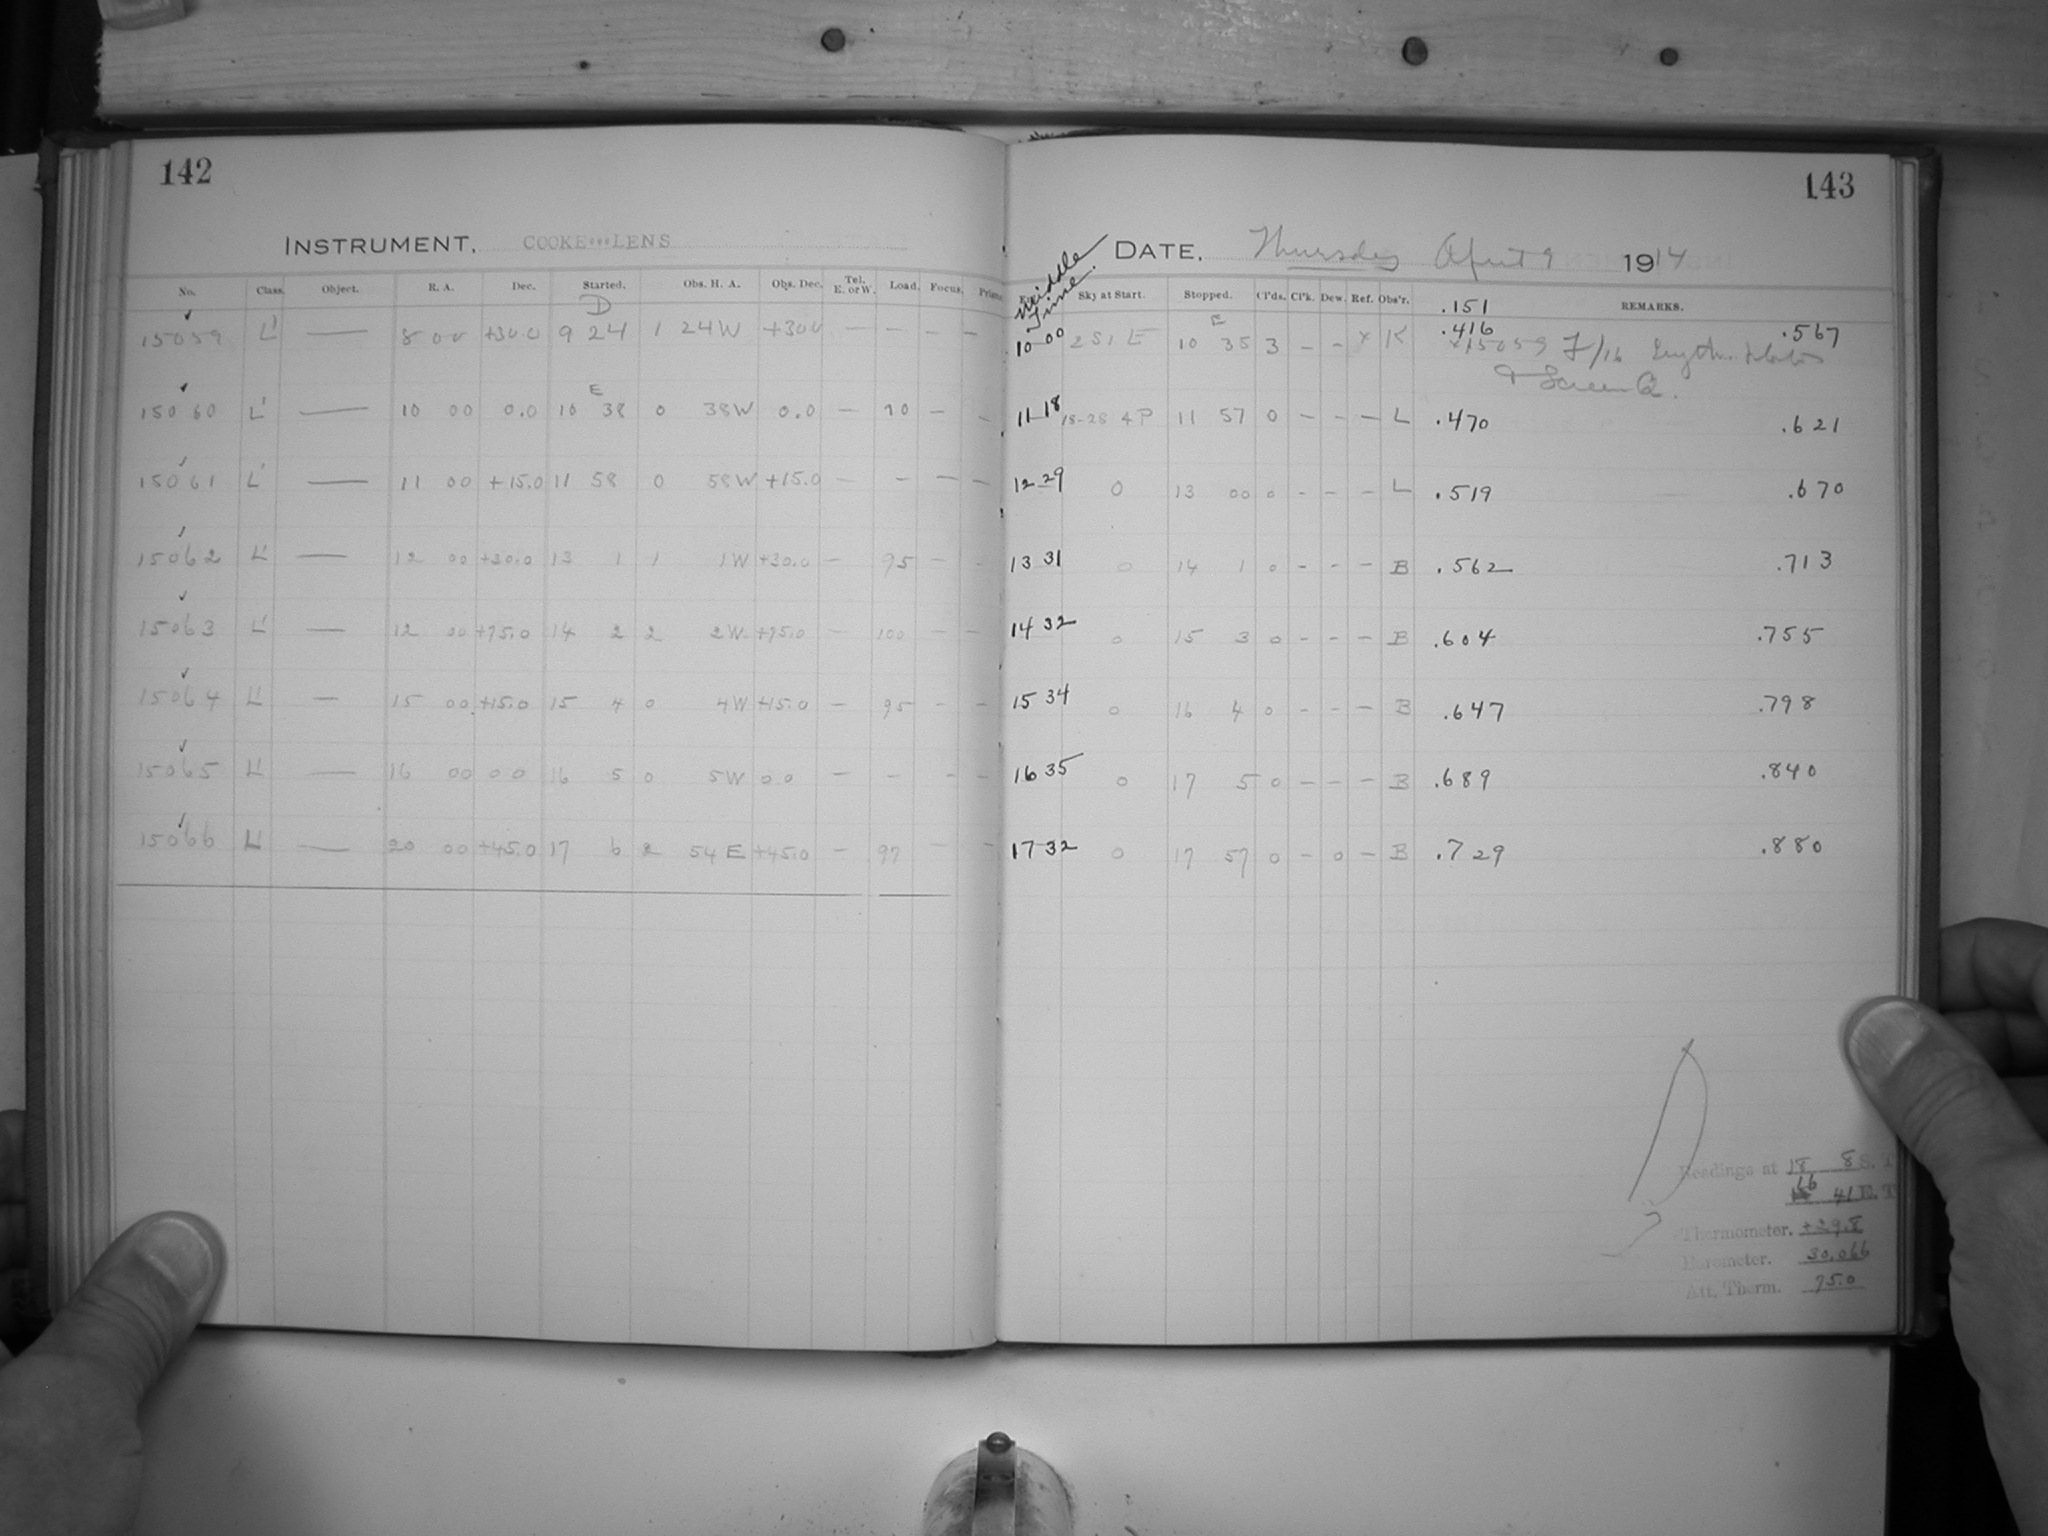 142
INSTRUMENT, COOKE LENS
No. Class. Object. R. A. Dec. Started. Obs. H. A. Obs. Dec. Tel. E. or W. Load. Focus. Prism
D
15059 L' — 8 00 +30.0 9 24 1 24 W +30.0 — — — —
E
15060 L' — 10 00 0.0 10 38 0 38 W 0.0 — 90 — —
15061 L' — 11 00 +15.0 11 58 0 58 W +15.0 — — — —
15062 L' — 12 00 +30.0 13 1 1 1 W +30.0 — 95 — -
15063 L' — 12 00 +75.0 14 2 2 2 W +75.0 — 100 — -
15064 L' — 15 00 +15.0 15 4 0 4 W +15.0 — 95 - -
15065 L' — 16 00 0 0 16 5 0 5 W 0 0 — — - —
15066 L' — 20 00 +45.0 17 6 2 54 E +45.0 — 97 — —
143
DATE, Thursday April 9 1914
Middle Time.
Sky at Start. Stopped. Cl'ds. Cl'k. Dew. Ref. Obs'r. REMARKS.
.151
E
10 00 2 S1 E 10 35 3 — - x K .416 .567
x15059 F/16
& Screen Q.
11 18 18-28 4P 11 57 0 — - — L .470 .621
12 29 0 13 00 0 - — — L .519 .670
13 31 0 14 1 0 - - — B .562 .713
14 32 0 15 3 0 - - — B .604 .755
15 34 0 16 4 0 - - — B .647 .798
16 35 0 17 5 0 — — — B .689 .840
17 32 0 17 57 0 - 0 — B .729 .880
Readings at 18 8 S. T
16 41 E. T
Thermometer. +29.8
Barometer. 30.066
Att. Therm. 75.0